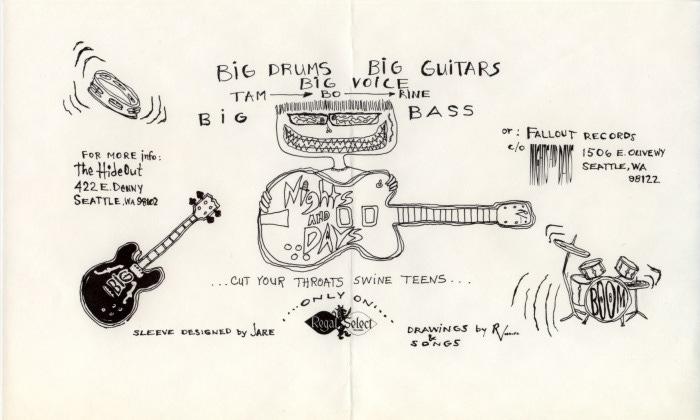 BiG DRUMS BiG GUiTARS
BiG VOiCE
TAM BO RiNE
BiG BASS
FOR MORE info:
the HideOut
422 E. DENNY
SEATTLE, WA 98102
or: FALLOUT RECORDS
c/o NIGHTS AND DAYS
1506 E. OLIVE WY
SEATTLE, WA
98122
Nights
AND
DAYS
BiG
BOOM
...CUT YOUR THROATS SWINE TEENS...
...ONLY ON...
Regal Select
SLEEVE DESIGNED by JARE
DRAWINGS by
&
SONGS